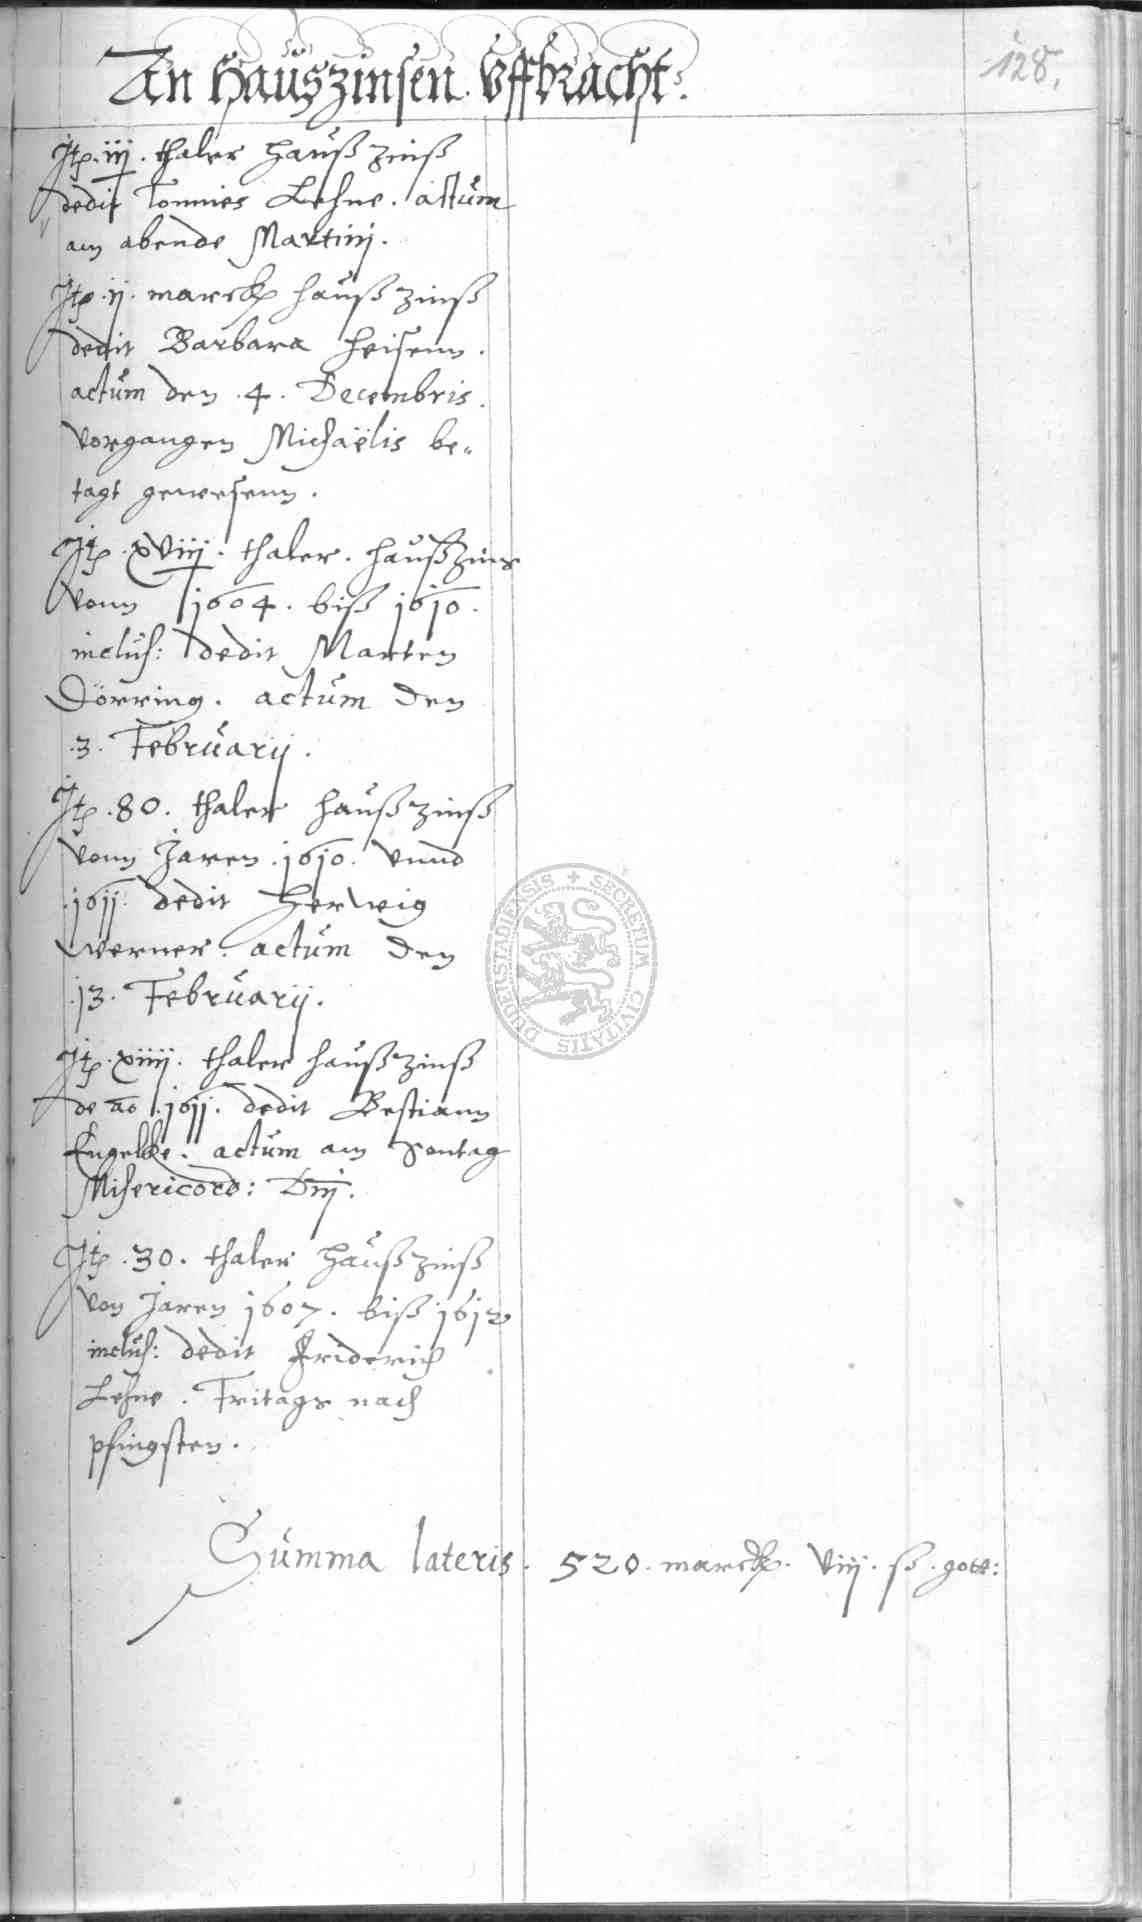 An Haüszinsen Uffbracht.
128.
Itp. iij. thaler haußzinß
dedit Tonnies Lehne. actum
am abende Martinj.
Itp. ij. marckp haußzinß
dedit Barbara Heisenn.
actüm den .4. Decembris.
vorgangen Michaëlis be=
tagt gewesenn.
Itp. xviij. thaler. haußzins
vonn 1604. biß 1610.
inclus: dedit Marten
Dörring. actüm den
.3. Februarij.
Itp .80. thaler haußzinß
vonn Jaren .1610. vnnd
.1611. dedit Herwig
Werner. actüm den
.13. Februarij.
Itp. xiiij. thaler haußzinß
de ao .1611. dedit Bestiann
Engelke. actüm am Sontag
Misericord: Dnj.
Itp .30. thaler haußzinß
von Jaren 1607. biß 1612
inclus: dedit Friderich
Lehne. Fritags nach
pfingsten.
Sümma lateris. 520. marckp. viij. ß. gott:
SECRETUM CIVITATIS DUDERSTADIENSIS